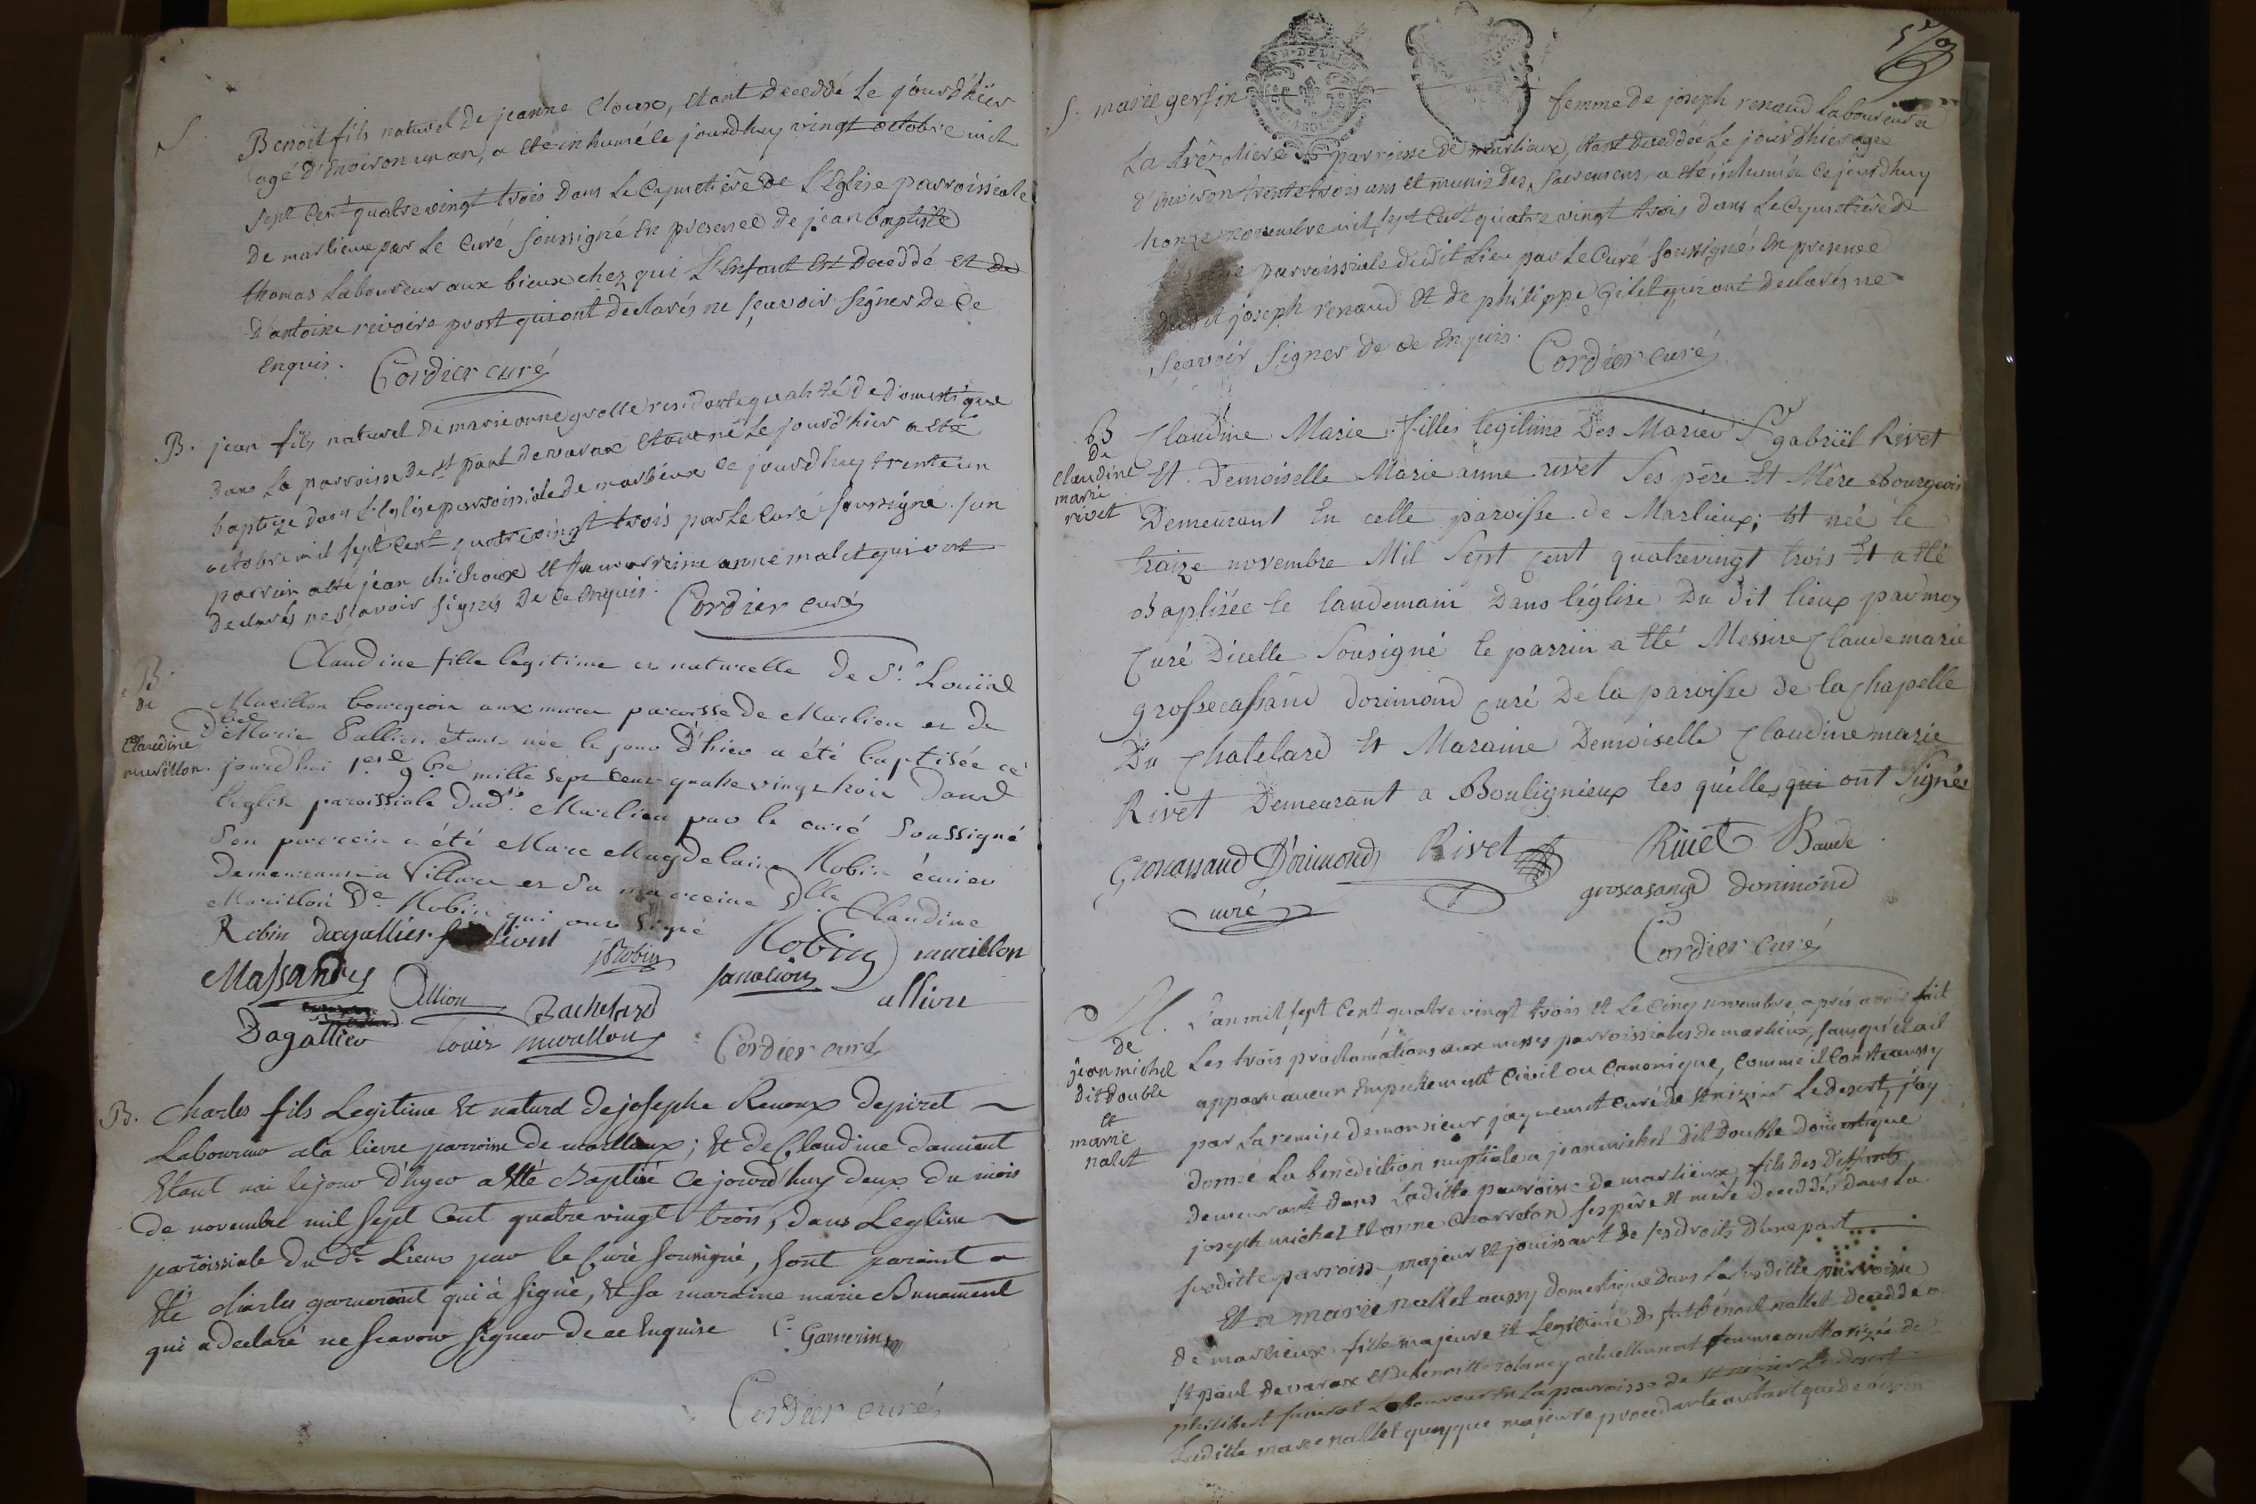 S. Benoit fils naturel de jeanne Cloux, etant decedde le jourdhier
agé d'environ un an, a eté inhumé le jourdhuy vingt octobre mil
sept cent quatre vingt trois dans le Cymetiere de l'Eglise parroissiale
de marlieux par le Curé soussigné en presence de jean baptiste
thomas laboureur aux bieux chez qui l'enfant est deceddé et de
d'antoine revoire prost qui ont declarés ne sçavoir signer de ce
enquis.
Cordier curé
B. jean fils naturel de marie anne grolle residante qualité de domestique
dans la parroisse de st paul de varax etant né le jourdhier a eté
baptizé dans l'Eglise parroissiale de marlieux ce jourdhuy trente un
octobre mil sept cent quatre vingt trois par le curé soussigné. son
parrein a eté jean chichoux et sa marreine anne malet qui ont
declarés ne sçavoir signer de ce enquis.
Cordier curé
B. de Claudine muvillon.
Claudine fille légitime et naturelle de Sr. Louis
Muvillon bourgeois aux mures paroisse de Marlieu et de
Dlle Marie Vallien étant née le jour d'hier a été baptisée ce
jourd'hui 1er 9bre mille sept cent quatre vingt trois dans
l'église paroissiale dudt. Marlieu par le curé soussigné
son parrein a été Marc Magdelaine Robin écuier
demeurant a Villars et sa marreine Dlle Claudine
Muvillon De Robin qui ont signé
Robin dagallier Robin muvillon
Massandry Allion Bachelard allion
Dagallier Louis muvillon Cordier curé
B. Charles fils Legitime et naturel de josephe Renoux depiret
Laboureur a la lievre parroisse de marlieux; et de Claudine damient
Etant nai lejour d'hyer a etté Baptisé ce jourd'huy deux du mois
de novembre mil sept cent quatre vingt trois, dans Leglise
paroissiale du dt Lieux par le Curé sousigné, sont paraint a
Eté charles garnerent qui à signé, et sa maraine marie Bunament
qui a declaré ne scavoir signer de ce Enquise C. Garnerin
Cordier curé
S. marie gersin femme de joseph renaud laboureur a
La trézoliere parroisse de marlieux, etant deceddée le jourdhier agée
d'environ trente trois ans et munis des sacremens a eté inhumée ce jourdhuy
honze novembre mil sept cent quatre vingt trois dans le Cymetiere de
parroissiale dudit lieu par le Curé soussigné, en presence
dudit joseph renaud et de philippe gilet qui ont declarés ne
sçavoir signer de ce enquis.
Cordier curé
B de claudine marie rivet
Claudine Marie filles legitime Des Mariés Sr gabriël Rivet
Et Demoiselle Marie anne rivet Ses père Et Mère Bourgeois
Demeurant En celle paroisse de Marlieux; Et née le
traize novembre Mil Sept Cent quatrevingt trois Et a Eté
Baptisée le landemain Dans léglise Du Dit lieux par moy
Curé Dicelle Sousigné le parrin a Eté Messire Claudemarie
grossecassand dorimond Curé De la paroisse De la Chapelle
Du Chatelard Et Maraine Demoiselle Claudine marie
Rivet Demeurant a Boulignieux les quelles qui ont Signés
Groscassaud D'orimond curé Rivet Rivet Baude
groscasand dorimond
Cordier curé
M. de jean michel dit double et marie nalet
L'an mil sept cent quatre vingt trois et le cinq novembre, après avoir fait
Les trois proclamations aux messes parroissiales de marlieux, sans qu'il ait
apparu aucun empechement civil ou canonique, comme il conste aussy
par la remise de monsieur jayement curé de st nizier le desert, j'ay
donné la benediction nuptiale a jean michel dit double domestique
demeurant dans laditte parroisse de marlieux fils des deffunts
joseph michel et anne charreton ses père et mère deceddés dans la
suditte parroisse, majeur et jouissant de ses droits d'une part
Et a marie nallet aussy domestique dans la suditte parroisse
de marlieux fille majeure et Legitime de fut benoit nallet deceddé a
st paul de varax et de benoitte tolaney actuellement femme authorizée de
philibert laboureur en la parroisse de st nizier le desert
Laditte marie nallet quoyque majeure procedante autant que de besoin